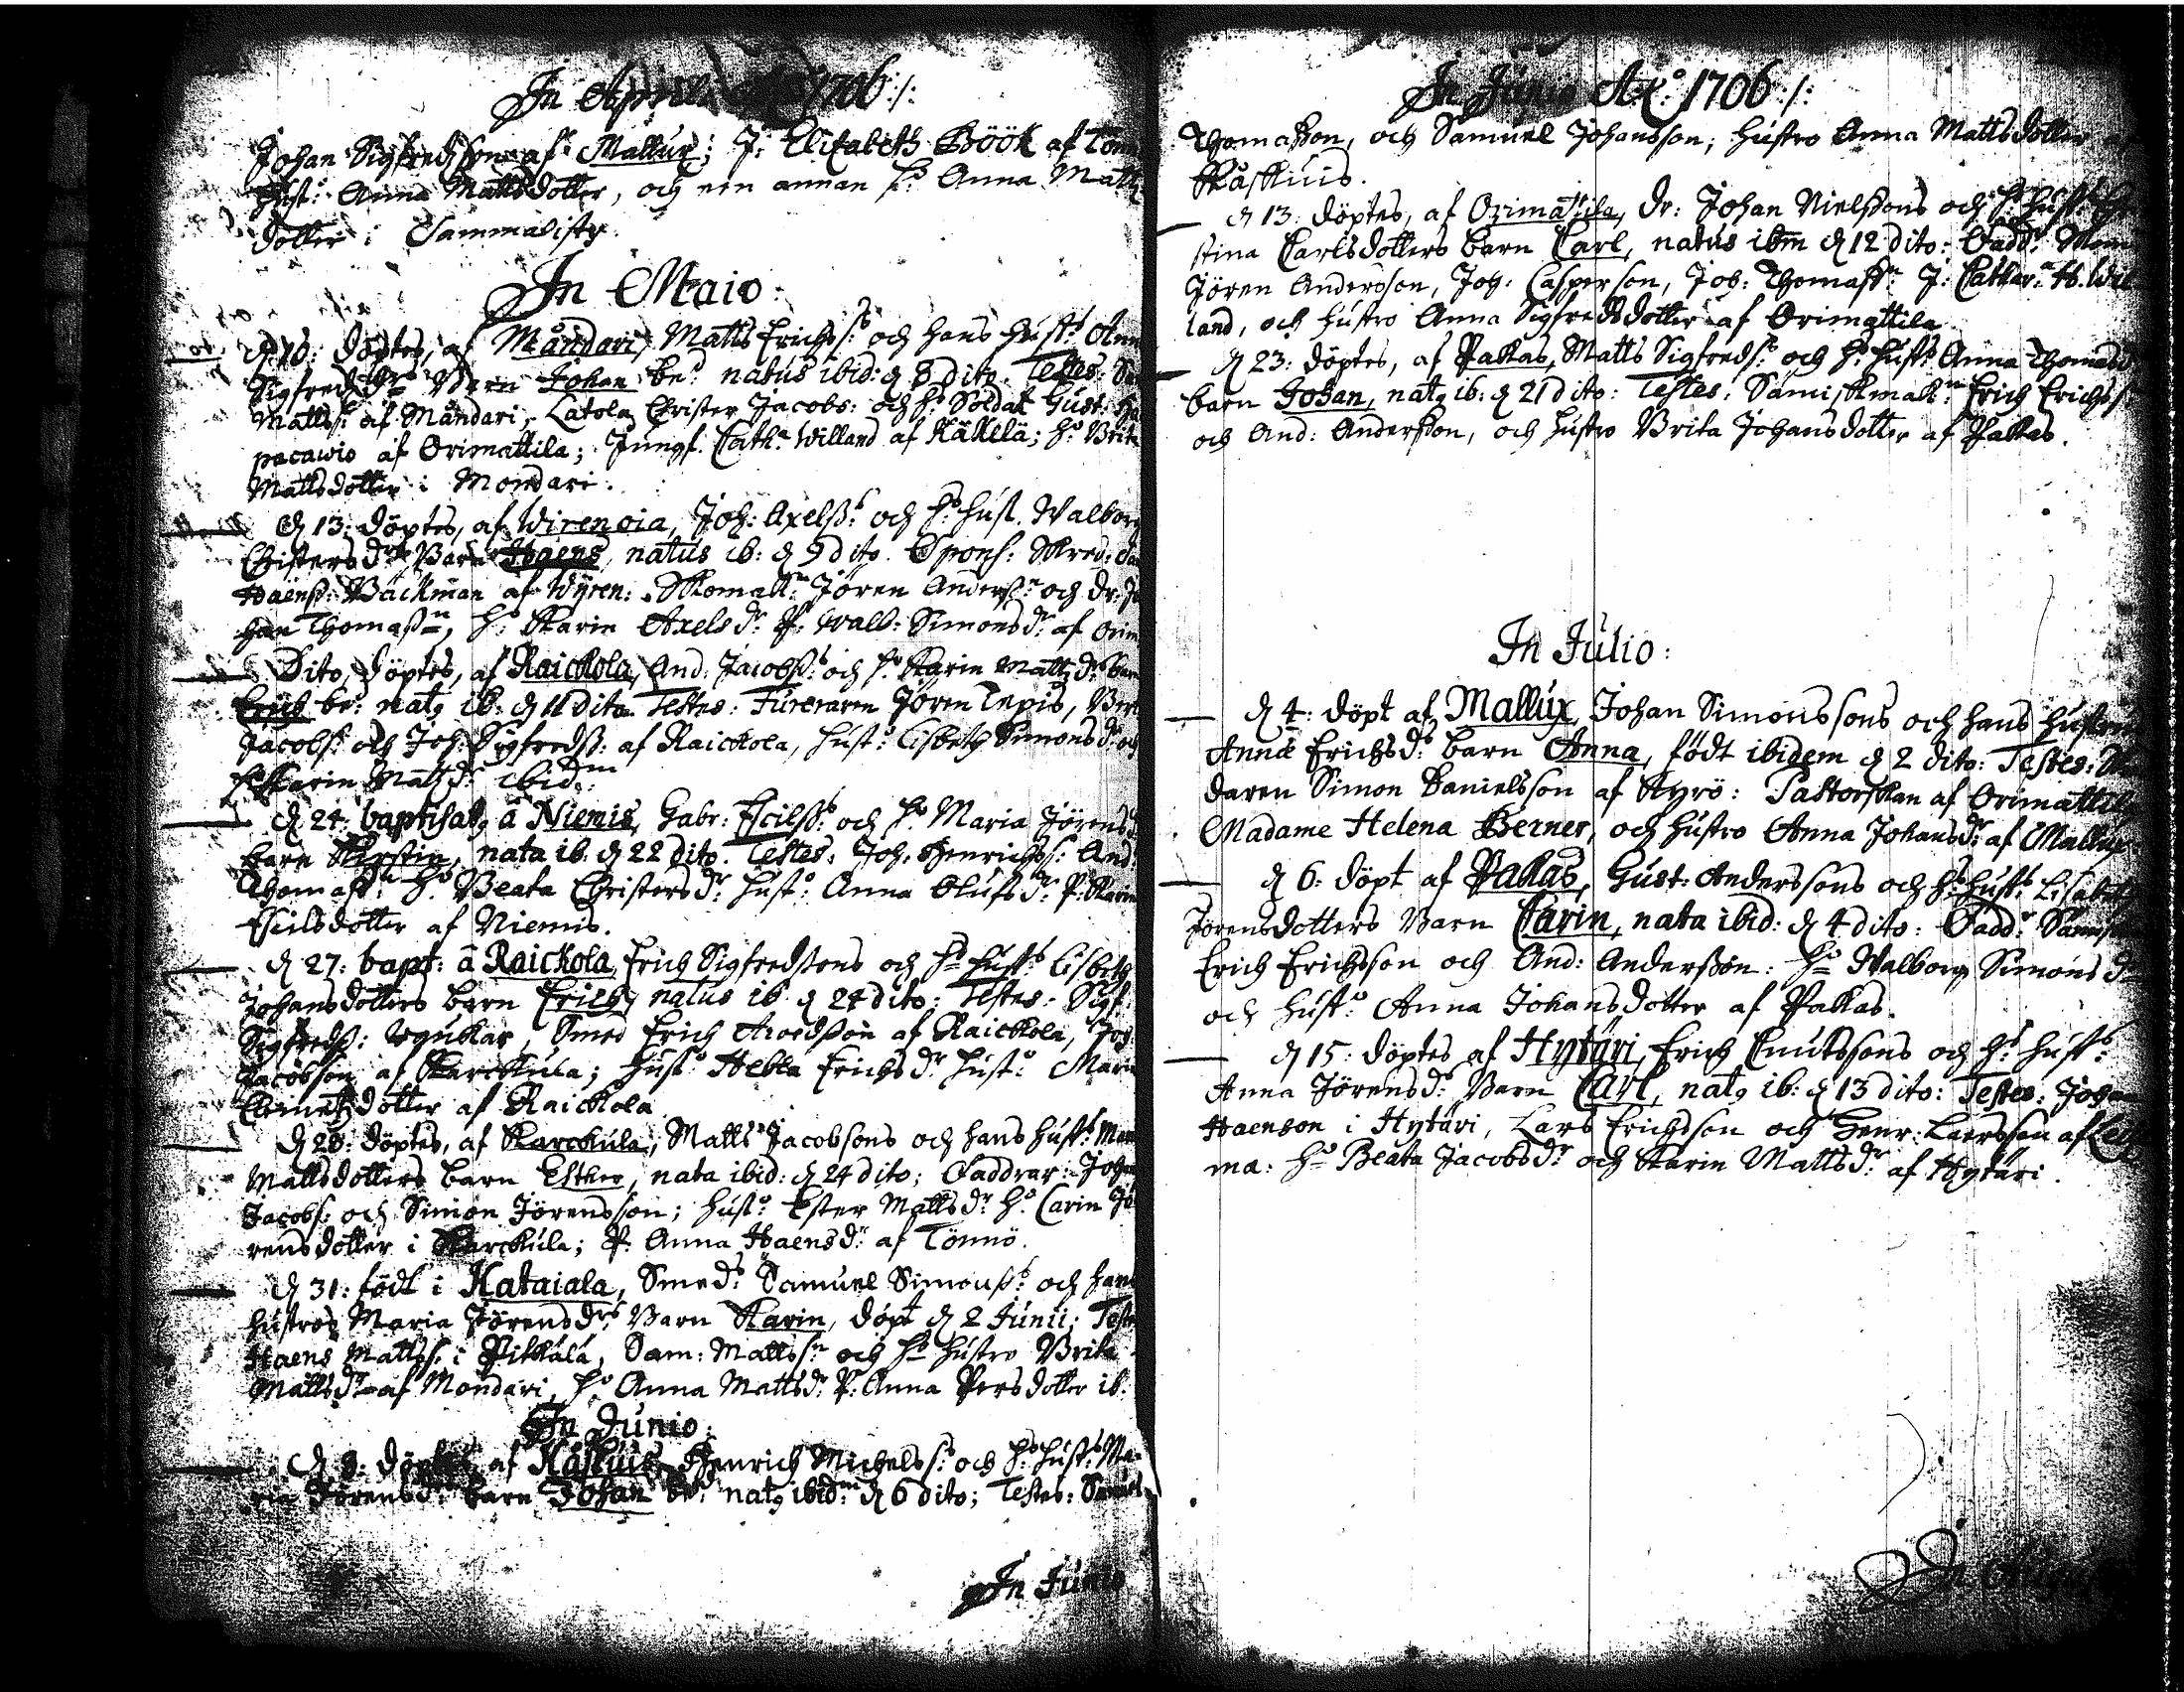 In Aprili 1706:/:
Johan Sigfredsson af Mallux; J: Elisabeth Böök af Tönn
Hust: Anna Mattsdotter, och een annan ho Anna Matts
dotter i Sammalisty.
In Maio:
d 10: döptes, af Måndari, Matts Erichss: och hans Hust: Ann
Sigfredsdrs Barn Johan be: natus ibid: d 8 dito. Testes:
Mattss: af Mändari, Latola Christer Jacobs: och hs Soldat Gust:
pacawio af Orimattila; Jungf. Cath: Willand af Käkelä; ho Brita
Mattsdotter i Mondari.
d 13: döptes, af Wirenoia, Joh: Axelss: och hs hust. Walborg
Christersdrs Barn Haens, natus ib: d 9 dito. Spons: Skred:
Haenss: Bäckman af Wyren: Skomak: Jören Anderss: och Dr: Jo
han Thomass:, ho Karin Axelsdr P: Walb: Simonsdr af Orim
Dito, döptes, af Raickola, And: Jacobss: och ho Karin Mattsdrs barn
Erich be: nat9 ib: d 11 dito. Testes: Fureraren Jören Lepis,
Jacobs: och Joh: Sigfredss: af Raickola, hust: Lisbeth Simonsdr och
ho Karin Mattsdr ibidm
d 24: baptisat9 â Niemis, Gabr: Escilss: och ho Maria Jörensd
barn Kirstin, nata ib: d 22 dito. Testes: Joh: Henrichss: And:
Thomass: ho Beata Christersdr: hust: Anna Olufsdr: P: Karin
Escilsdotter af Niemis.
d 27: bapt: â Raickola, Erich Sigfredssons och hs hust: Lisbeth
Johansdotters barn Erich, natus ib: d 24 dito: Testes: Sigf:
Sigfredss: ungkar, Smed Erich Arvedsson af Raickola, Joh:
Jacobsson af Karckula; hust: Hebla Erichsdr hust: Maria
Clemetsdotter af Raickola
d 28: döptes, af Karckula, Matts Jacobsons och hans hust:
Mattsdotters barn Esther, nata ibid: d 24 dito; Faddrar: Joha
Jacobs: och Simon Jörensson; hust: Ester Mattsdr ho Carin Jö
rensdotter i Karckula; P: Anna Haensdr af Tönnö.
d 31: födt i Hataiala, Smeds Samuel Simonss: och hans
hustros Maria Jörensdrs Barn Karin, döpt d 2 Junii; Teste
Haens Mattss: i Pitkälä, Sam: Mattss: och hs hustro Brita
Mattsdr af Mondari, ho Anna Mattsdr P: Anna Persdotter ib:
In Junio:
d 8: döptes af Käskuis, Henrich Michelss: och hs hust: Ma-
ria Jörensdrs barn Johan be: nat9 ibidm d 6 dito; Testes: Samuel
In Junio
In Junio Ao: 1706:/:
Thomasson, och Samuel Johansson; hustro Anna Mattsdotter
Kåskuis.
d 13: döptes, af Orimattila, Dr: Johan Nielssons och hs hust:
stina Carlsdotters barn Carl, natus ibm d 12 dito: Fadd:
Jören Andersson, Joh: Casperson, Joh: Thomass: J: Cathar: H. Wil
land, och hustro Anna Sigfredsdotter af Orimattila
d 23: döptes, af Pakas, Matts Sigfreds: och hs hust: Anna Thomasd
barn Johan, nat9 ib: d 21 dito: Testes: Sämiskmak: Erich Erichss
och And: Andersson, och hustro Brita Johansdotter af Pakas.
In Julio:
d 4: döpt af Mallux, Johan Simonssons och hans hustro
Annæ Erichsdrs barn Anna, födt ibidem d 2 dito: Testes:
daren Simon Danielsson af Kyrö: Pastorskan af Orimattila
Madame Helena Berner, och hustro Anna Johansdr af Mallux
d 6: döpt af Pakas, Gust: Anderssons och hs hust: Lisabeth
Jörensdotters Barn Carin, nata ibid: d 4 dito: Fadd:
Erich Erichsson och And: Andersson: ho Walborg Simonsdr
och hust: Anna Johansdotter af Pakas.
d 15: döptes af Hytäri, Erich Cnutssons och hs hust:
Anna Jörensdrs Barn Carl, nat9 ib: d 13 dito: Testes: Johan
Haenson i Hytäri, Lars Erichsson och Henr: Laersson af
ma: ho Beata Jacobsdr och Karin Mattsdr af Hytäri.